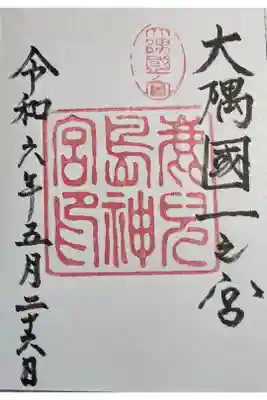 大隅國一之宮
鹿兒
島神
宮印
令和六年五月二十六日